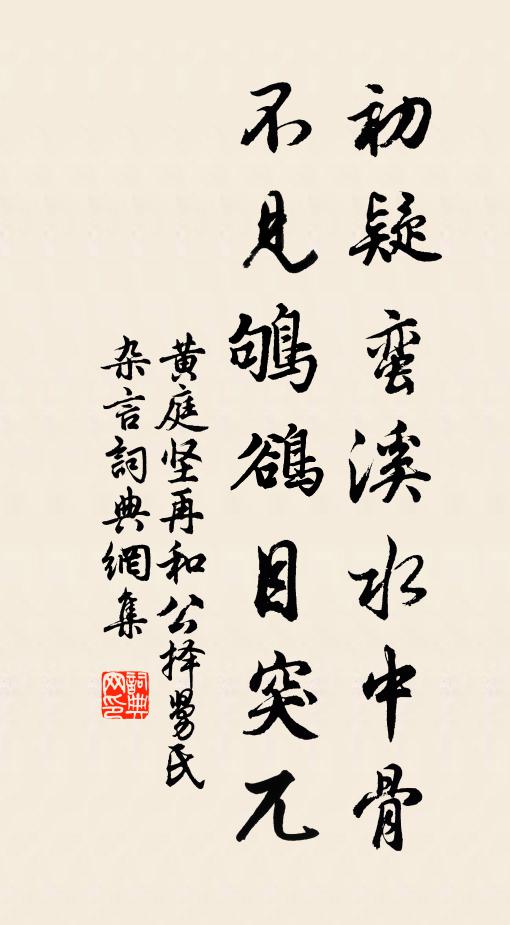 初疑蛮溪水中骨
不見鴝鵒目突兀
黄庭坚再和公择舅氏
杂言詞典網集
詞典
网印